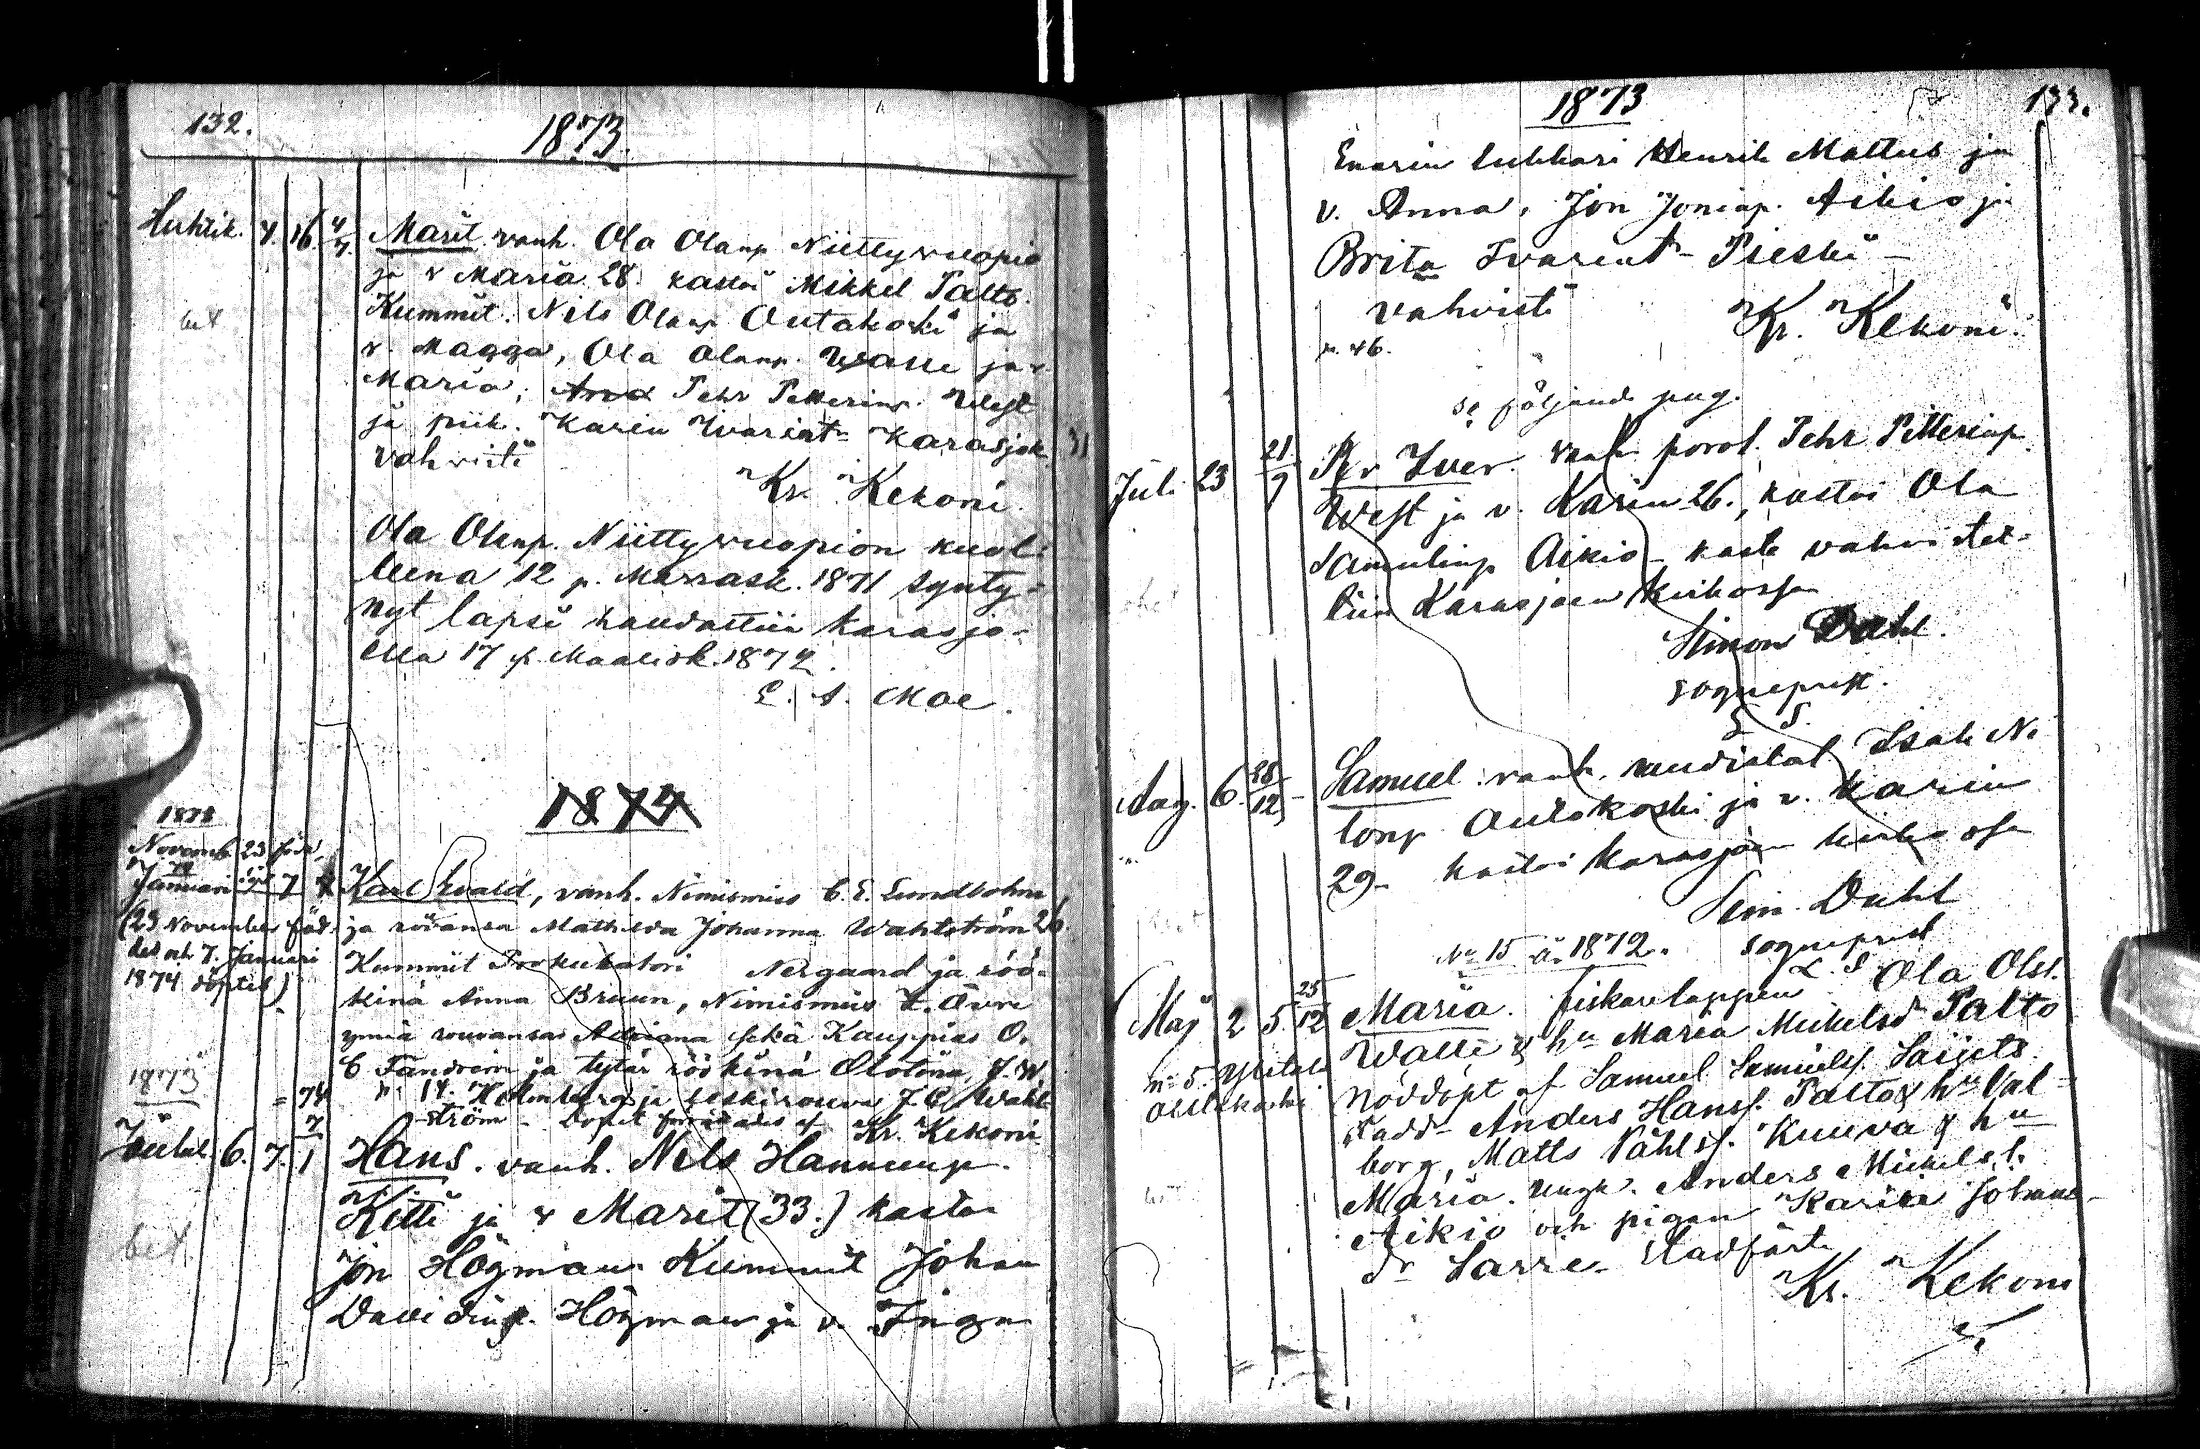 132.
1873.
Huhtik. 4. 16.
Marit. vanh. Ola Olanp Niittyvuopio
ja v Maria 28. kastoi Mikkel Palto.
Kummit. Nils Olanp Outakoski ja
v. Magga, Ola Olanp. Walle ja v
Maria; Pehr Petterinp. West
ja piik. Karin Ivarint. Karasjok
vahvisti
Kr. Kekoni
Ola Olanp. Niittyvuopion kuol-
leena 12 p. Marrask. 1871 synty-
nyt lapsi haudattiin Karasjo-
ella 17 p. Maalisk. 1872.
E. A. Moe.
1874
1873
Novemb. 23 född,
Januari 7
(23 November föd-
des och 7. Januari
1874 döptes)
Karl Evald, vanh. Nimismies C. E. Lundbohm
ja rouvansa Mathilda Johanna Wahlström 26.
Kummit Prokuratori Nergaard ja röö-
kinä Anna Bruun, Nimismies
rouvansa sekä Kauppias O.
E ja tytär röökinä
Holmberg ja leskirouva Wahl-
ström - Kr. Kekoni
1873
6. 7. 7/1
Hans. vanh. Nils Hannunp.
Kitti ja v Marit (33.) kastoi
Jon Högman. Kummit Johan
Davidinp. Högman ja v. Inga
1873
133.
Enarin lukkari Henrik Mattus ja
v. Anna, Jon Joninp. Aikio ja
Brita Ivarint- Pieski -
vahvisti
Kr. Kekoni
p. 46.
se följand pag.
Juli 23 21/7
Per Iver. vanh porol. Pehr Petterinp.
West ja v. Karin 26., kastoi Ola
Samulinp Aikio - kaste vahvistet-
tiin Karasjoen kirkossa
Simon Dahl.
sogneprest.
L. S.
Aug. 6. 28/12
Samuel. vanh. uudistal. Isak Ni-
lonp Outakoski ja v. Karin
29 - kastoi Karasjoen kirkossa
Sim. Dahl
sogneprest
L. S
No 15 år 1872.
Maj 2 5. 25/12
Maria. fiskarelappen Ola Olss.
Walle & hu Maria Mickelsd Palto
nöddöpt af Samuel Samuelss. Saijets
Fadd- Anders Hanss. Palto & hu Val-
borg, Matts Påhlss. Kuuva & hu
Maria. Ungk. Anders Mickelss.
Aikio och pigan Karin Johans-
dr Sarre. Stadfäst
Kr. Kekoni